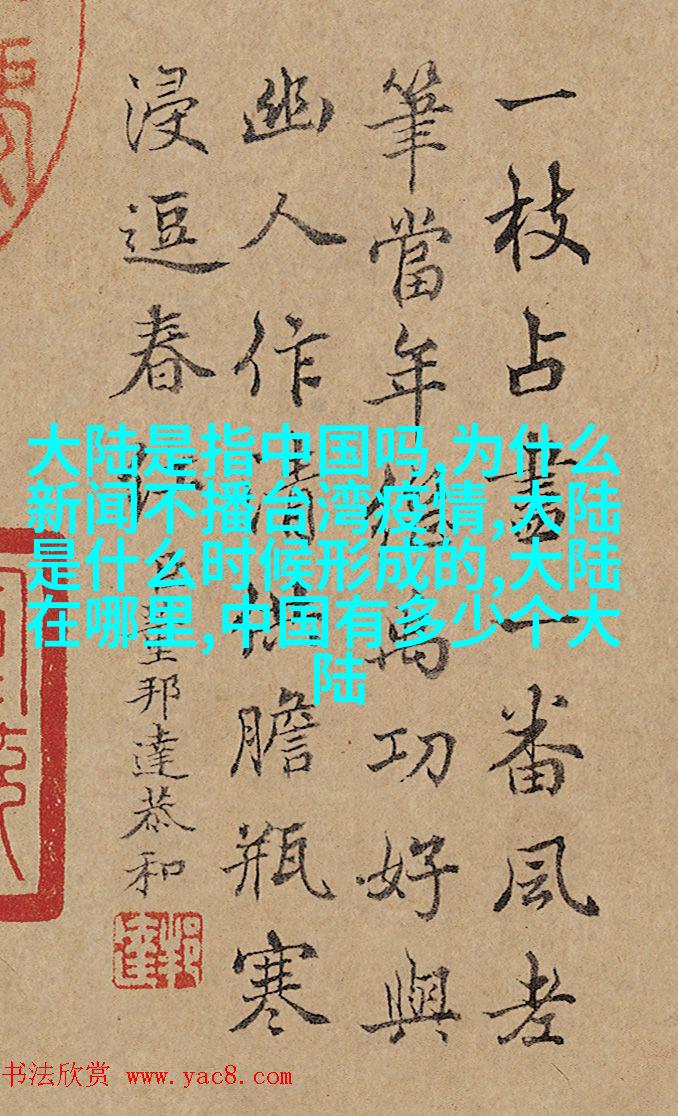 一枝占盡一番風老
筆當年繪禹功好與
幽人作清供膽瓶寒
浸逗春
臣董邦達恭和
大陆是指中国吗,为什么
新闻不播台湾疫情,大陆
是什么时候形成的,大陆
在哪里,中国有多少个大
陆
书法欣赏 www.yac8.com